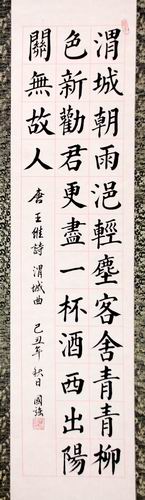 渭城朝雨浥輕塵客舍青青柳
色新勸君更盡一杯酒西出陽
關無故人
唐王維詩渭城曲 己丑年秋日國強